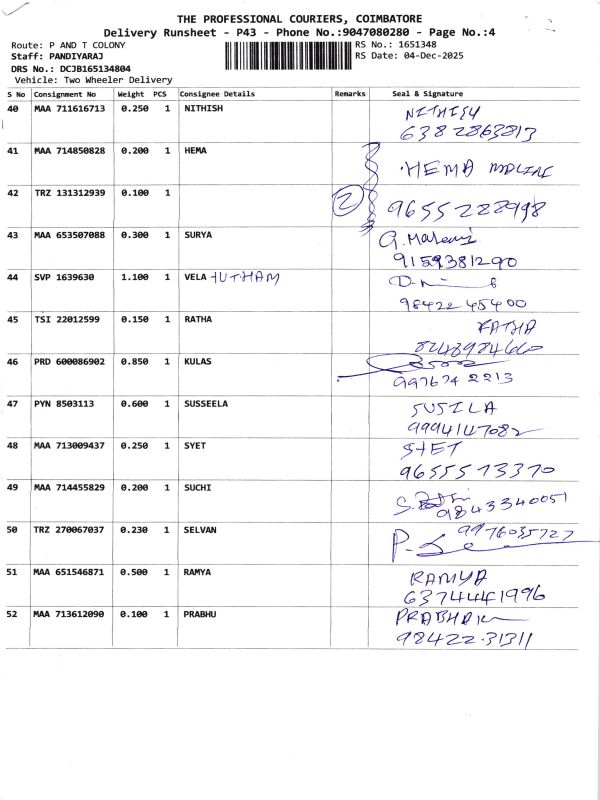 THE PROFESSIONAL COURIERS, COIMBATORE
Delivery Runsheet - P43 - Phone No.:9047080280 - Page No.:4
Route: P AND T COLONY
RS No.: 1651348
Staff: PANDIYARAJ
RS Date: 04-Dec-2025
DRS No.: DCJB165134804
Vehicle: Two Wheeler Delivery
S No Consignment No Weight PCS Consignee Details Remarks Seal & Signature
40 MAA 711616713 0.250 1 NITHISH NITHISH
6382863813
41 MAA 714850828 0.200 1 HEMA HEMA
42 TRZ 131312939 0.100 1 2 9655228998
43 MAA 653507088 0.300 1 SURYA
9159381290
44 SVP 1639630 1.100 1 VELA
98422 45400
45 TSI 22012599 0.150 1 RATHA RATHA
46 PRD 600086902 0.850 1 KULAS
997674 2213
47 PYN 8503113 0.600 1 SUSSEELA SUSILA
9994147082
48 MAA 713009437 0.250 1 SYET SYET
9655573370
49 MAA 714455829 0.200 1 SUCHI
9843340051
50 TRZ 270067037 0.230 1 SELVAN 9976035727
51 MAA 651546871 0.500 1 RAMYA RAMYA
6374441996
52 MAA 713612090 0.100 1 PRABHU
98422-31311